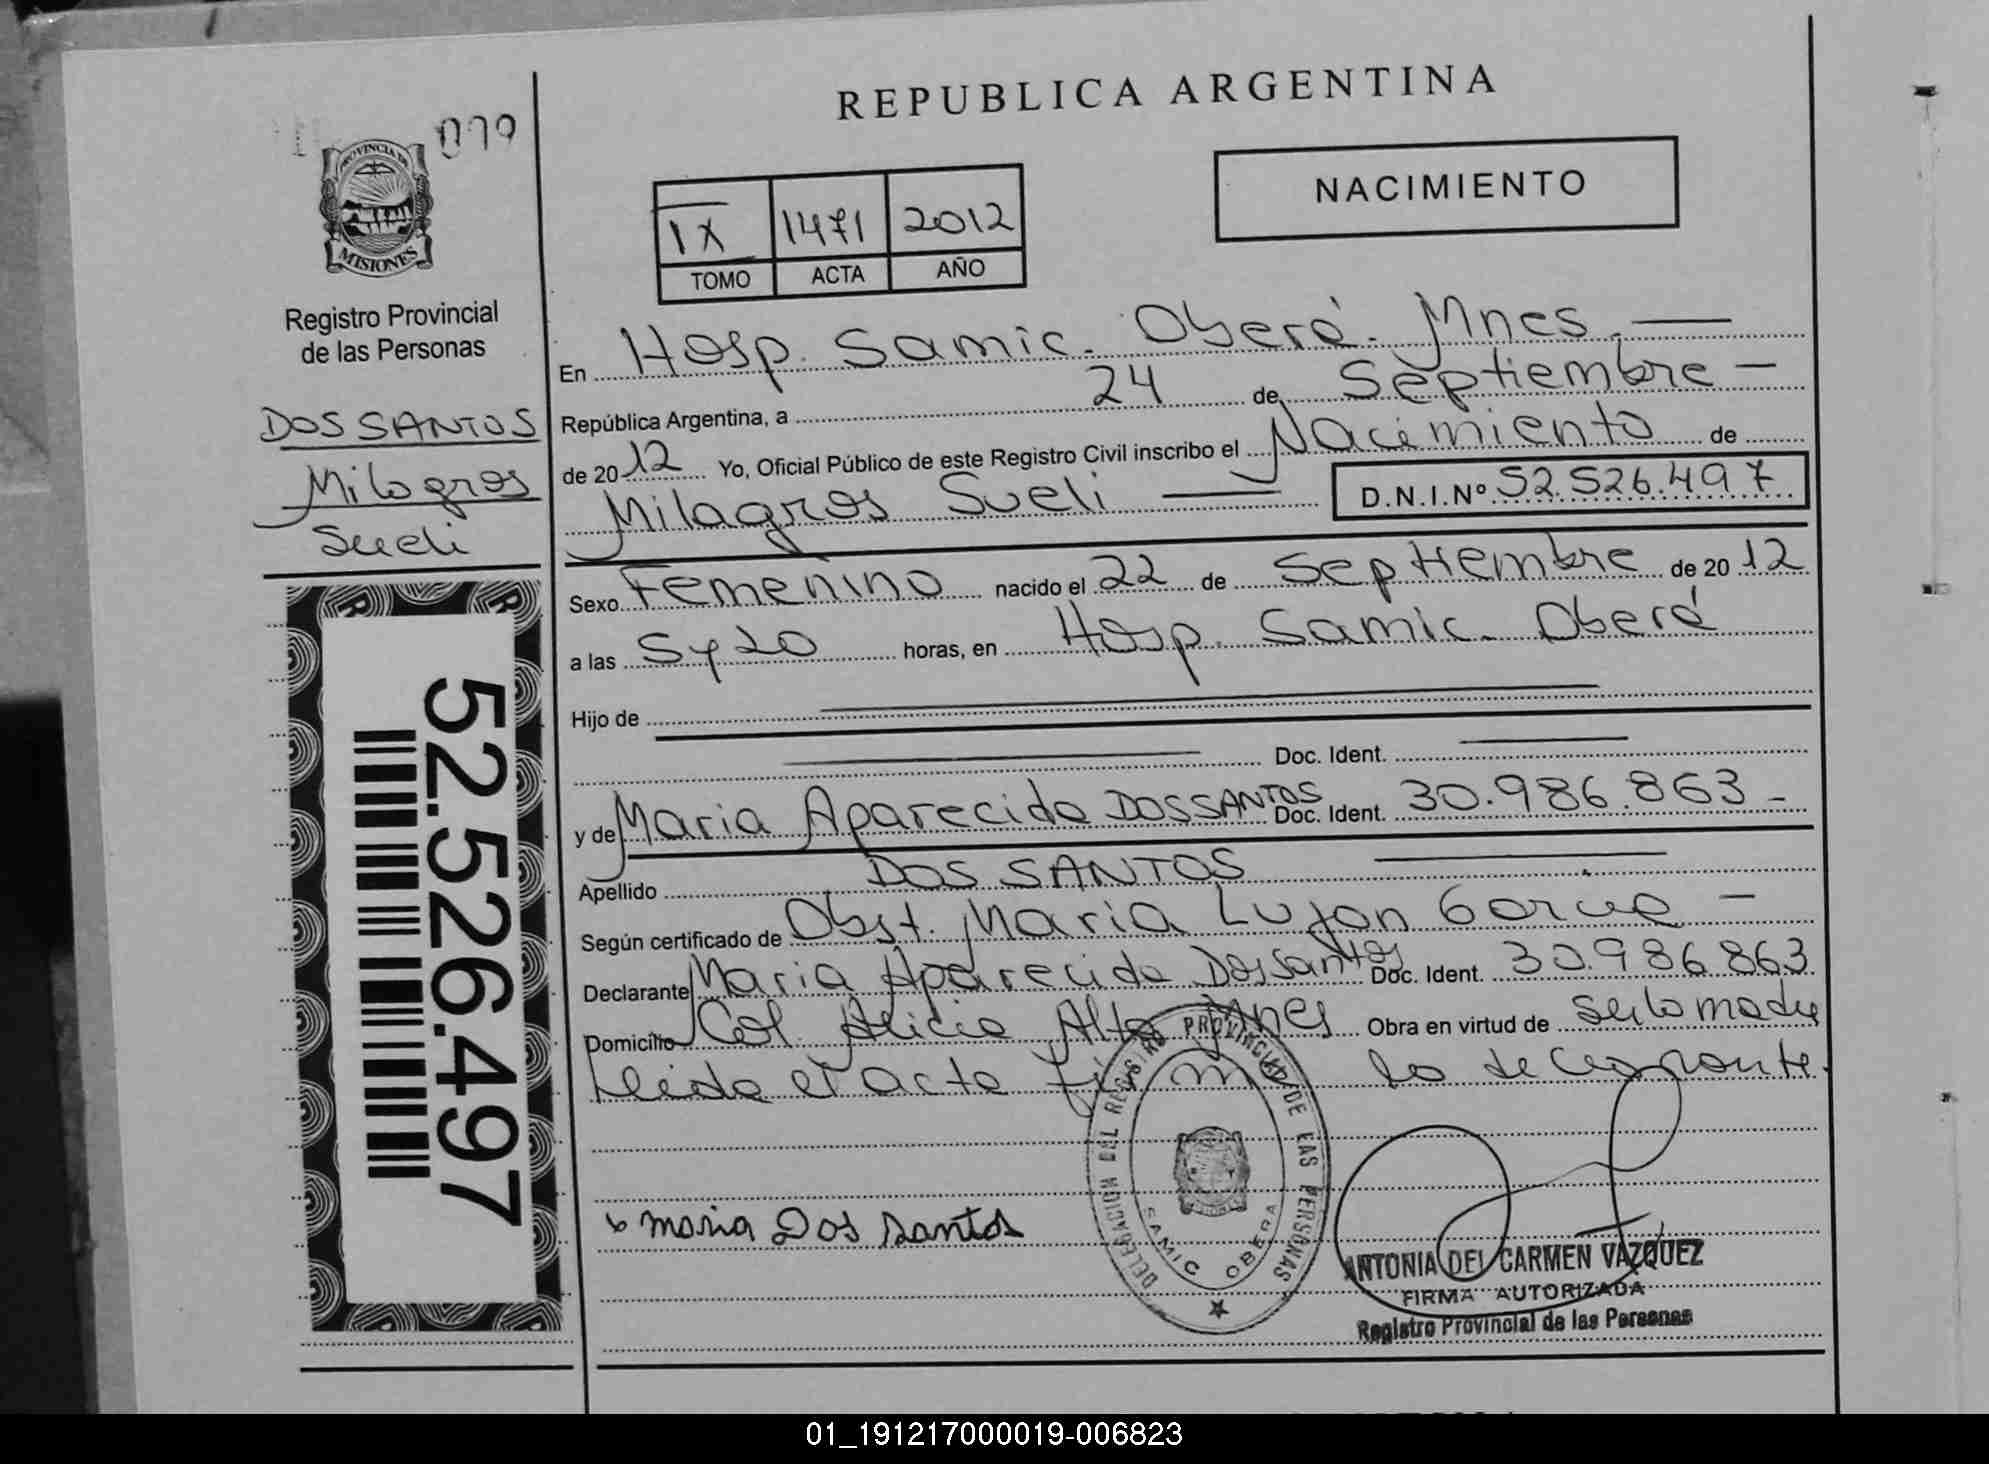 REPUBLICA ARGENTINA
079
PROVINCIA DE
MISIONES
Registro Provincial
de las Personas
DOS SANTOS
Milagros
Sueli
52.526.497
IX 1471 2012
TOMO ACTA AÑO
NACIMIENTO
En Hosp. Samic. Oberá. Mnes.
República Argentina, a 24 de Septiembre
de 2012 Yo, Oficial Público de este Registro Civil inscribo el Nacimiento de
Milagros Sueli D.N.I.Nº 52.526.497
Sexo Femenino nacido el 22 de Septiembre de 2012
a las 5 y 20 horas, en Hosp. Samic. Oberá
Hijo de
Doc. Ident.
y de Maria Aparecida DOS SANTOS Doc. Ident. 30.986.863
Apellido DOS SANTOS
Según certificado de Obst. Maria Lujan
Declarante Maria Aparecida Dos Santos Doc. Ident. 30.986.863
Domicilio Col. Alicia Alta Mnes Obra en virtud de ser la madre
Leida el acta firma la declarante.
DELEGACION DEL REGISTRO PROVINCIAL DE LAS PERSONAS
SAMIC OBERA
x maria Dos santos
ANTONIA DEL CARMEN VAZQUEZ
FIRMA AUTORIZADA
Registro Provincial de las Personas
01_191217000019-006823